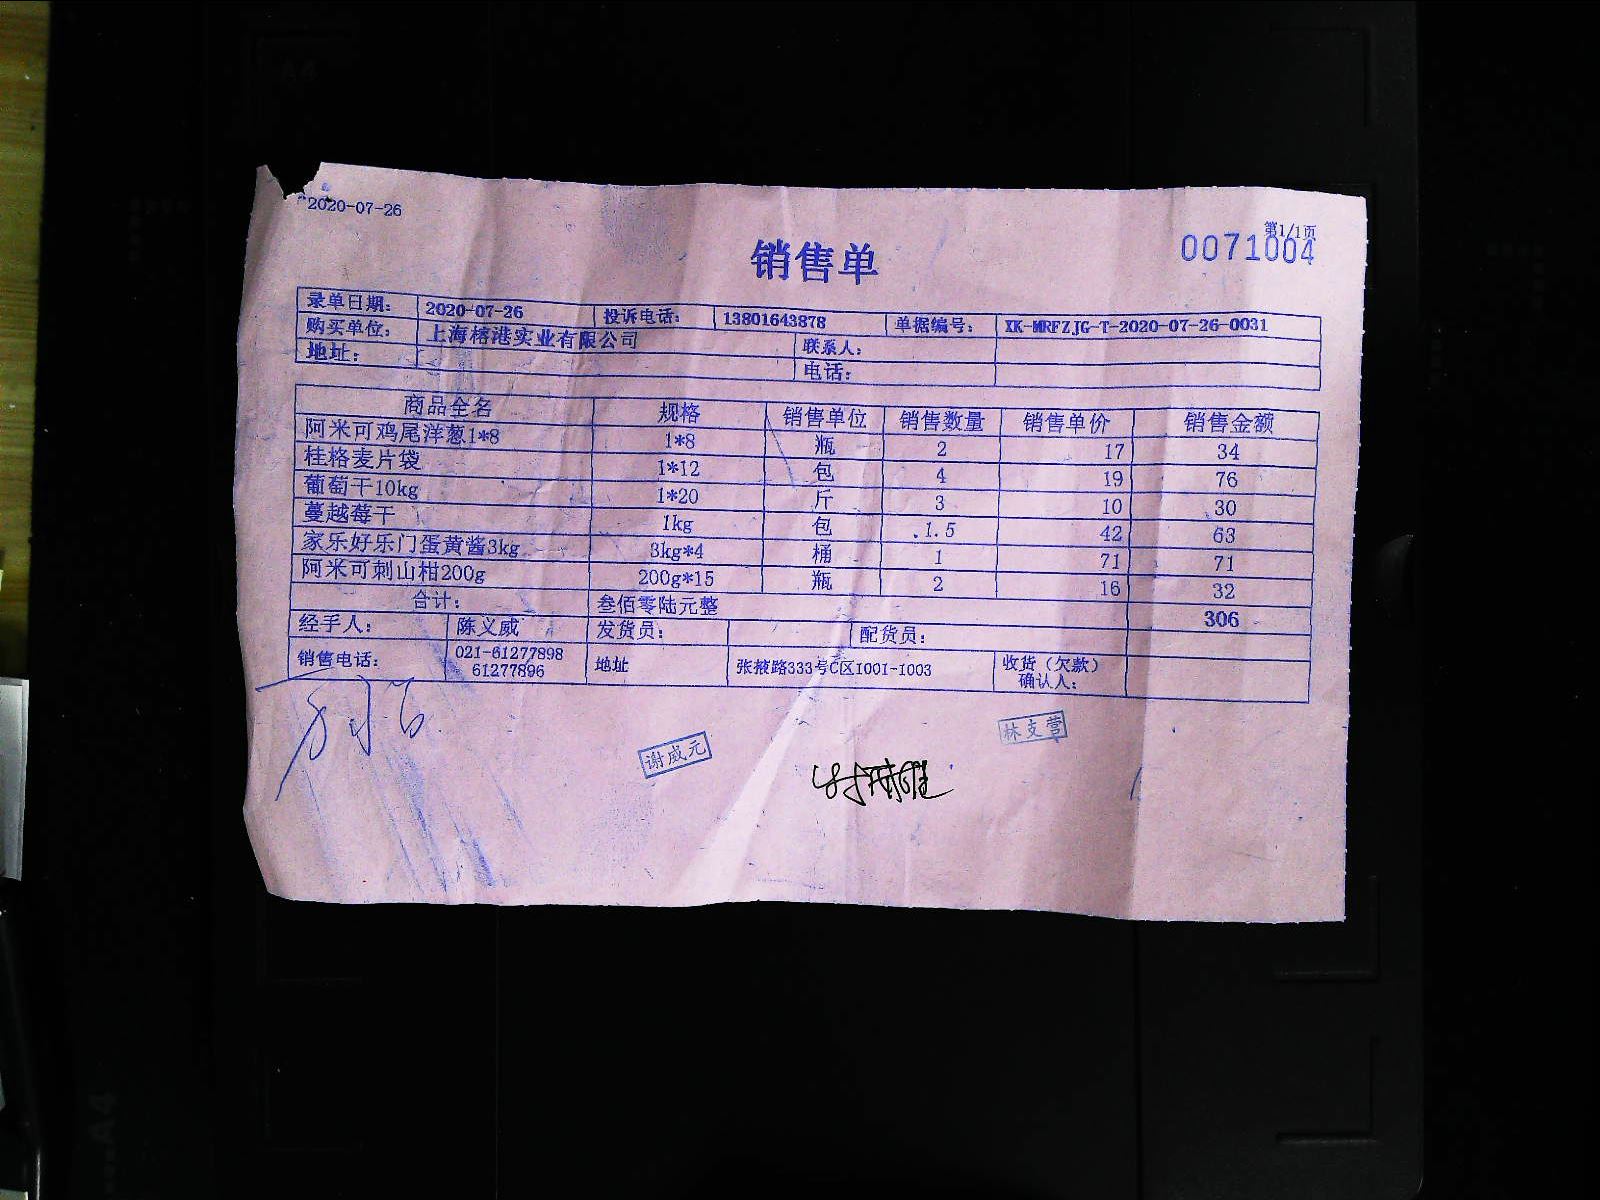 2020-07-26
第1/1页
销售单
0071004
录单日期: 2020-07-26 投诉电话: 13801643878 单据编号: XK-MRFZJG-T-2020-07-26-0031
购买单位: 上海榕港实业有限公司 联系人:
地址: 电话:
商品全名 规格 销售单位 销售数量 销售单价 销售金额
阿米可鸡尾洋葱1*8 1*8 瓶 2 17 34
桂格麦片袋 1*12 包 4 19 76
葡萄干10kg 1*20 斤 3 10 30
蔓越莓干 1kg 包 1.5 42 63
家乐好乐门蛋黄酱3kg 3kg*4 桶 1 71 71
阿米可刺山柑200g 200g*15 瓶 2 16 32
合计: 叁佰零陆元整 306
经手人: 陈义威 发货员: 配货员:
销售电话: 021-61277898 61277896 地址 张掖路333号C区1001-1003 收货（欠款）确认人:
谢威元
林支营